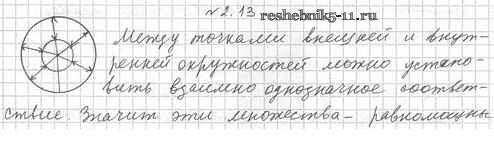 №2.13
reshebnik5-11.ru
Между точками внешней и внут-
ренней окружностей можно устано-
вить взаимно однозначное соответ-
ствие. Значит эти множества - равномощны